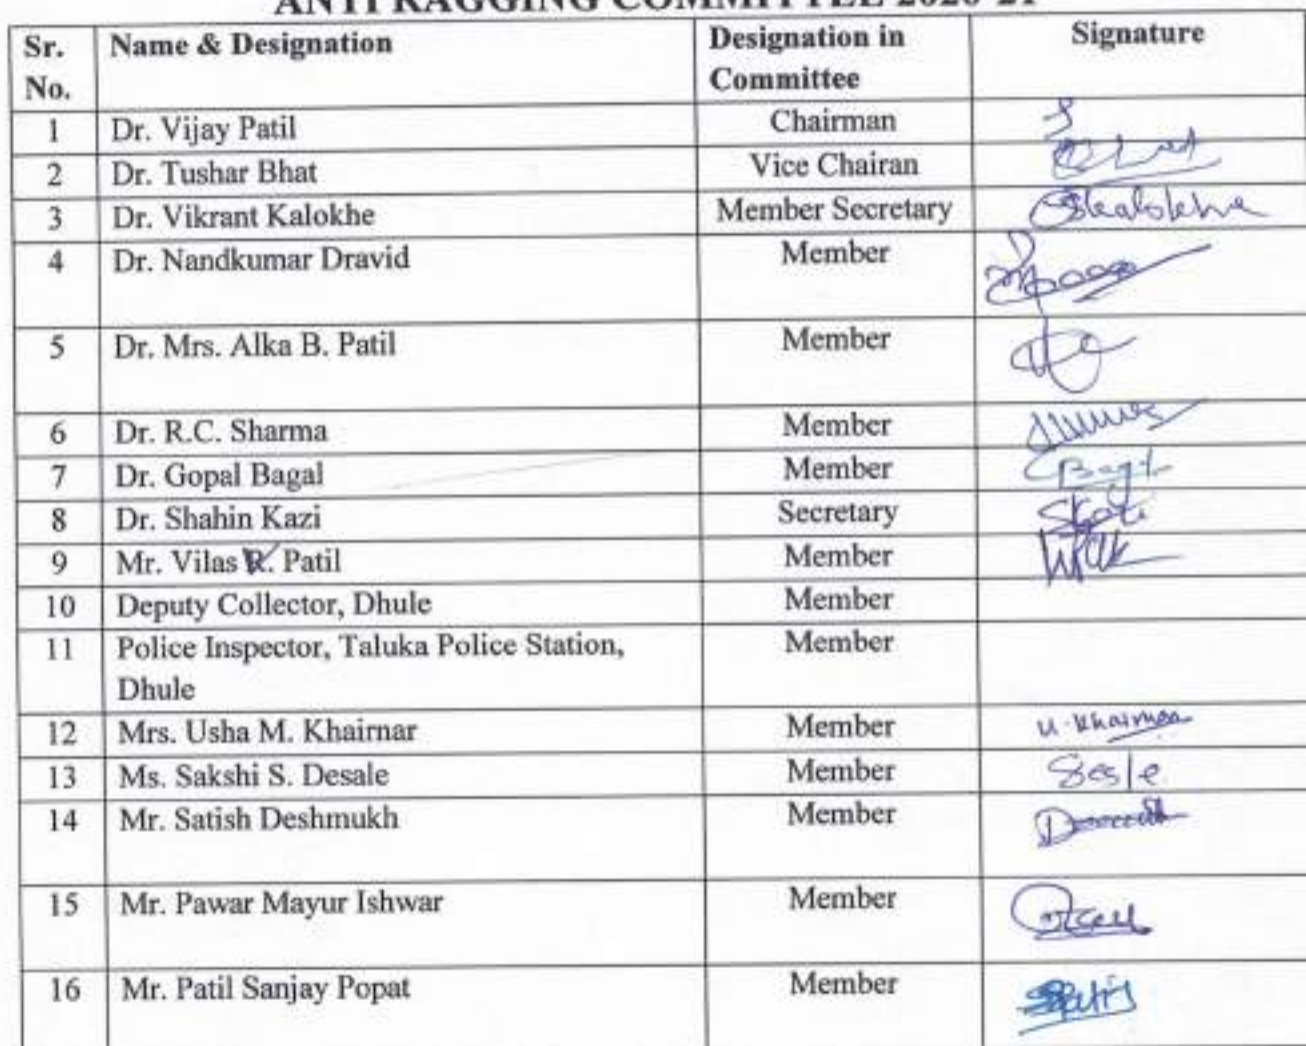 ANTI RAGGING COMMITTEE 2020-21
Sr. No. Name & Designation Designation in Committee Signature
1 Dr. Vijay Patil Chairman
2 Dr. Tushar Bhat Vice Chairan
3 Dr. Vikrant Kalokhe Member Secretary
4 Dr. Nandkumar Dravid Member
5 Dr. Mrs. Alka B. Patil Member
6 Dr. R.C. Sharma Member
7 Dr. Gopal Bagal Member
8 Dr. Shahin Kazi Secretary
9 Mr. Vilas Patil Member
10 Deputy Collector, Dhule Member
11 Police Inspector, Taluka Police Station, Member
Dhule
12 Mrs. Usha M. Khairnar Member
13 Ms. Sakshi S. Desale Member
14 Mr. Satish Deshmukh Member
15 Mr. Pawar Mayur Ishwar Member
16 Mr. Patil Sanjay Popat Member